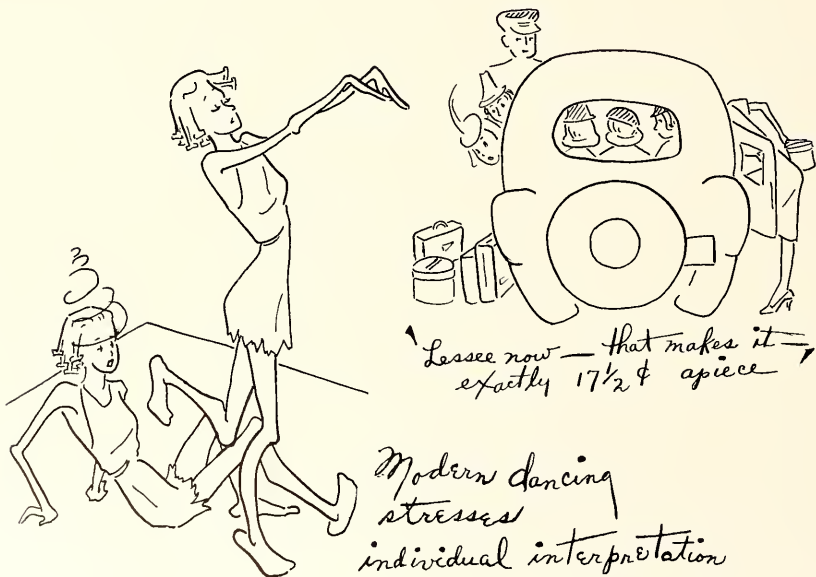 ' Lessee now — that makes it —
exactly 17½ ¢ apiece '
Modern dancing
stresses
individual interpretation